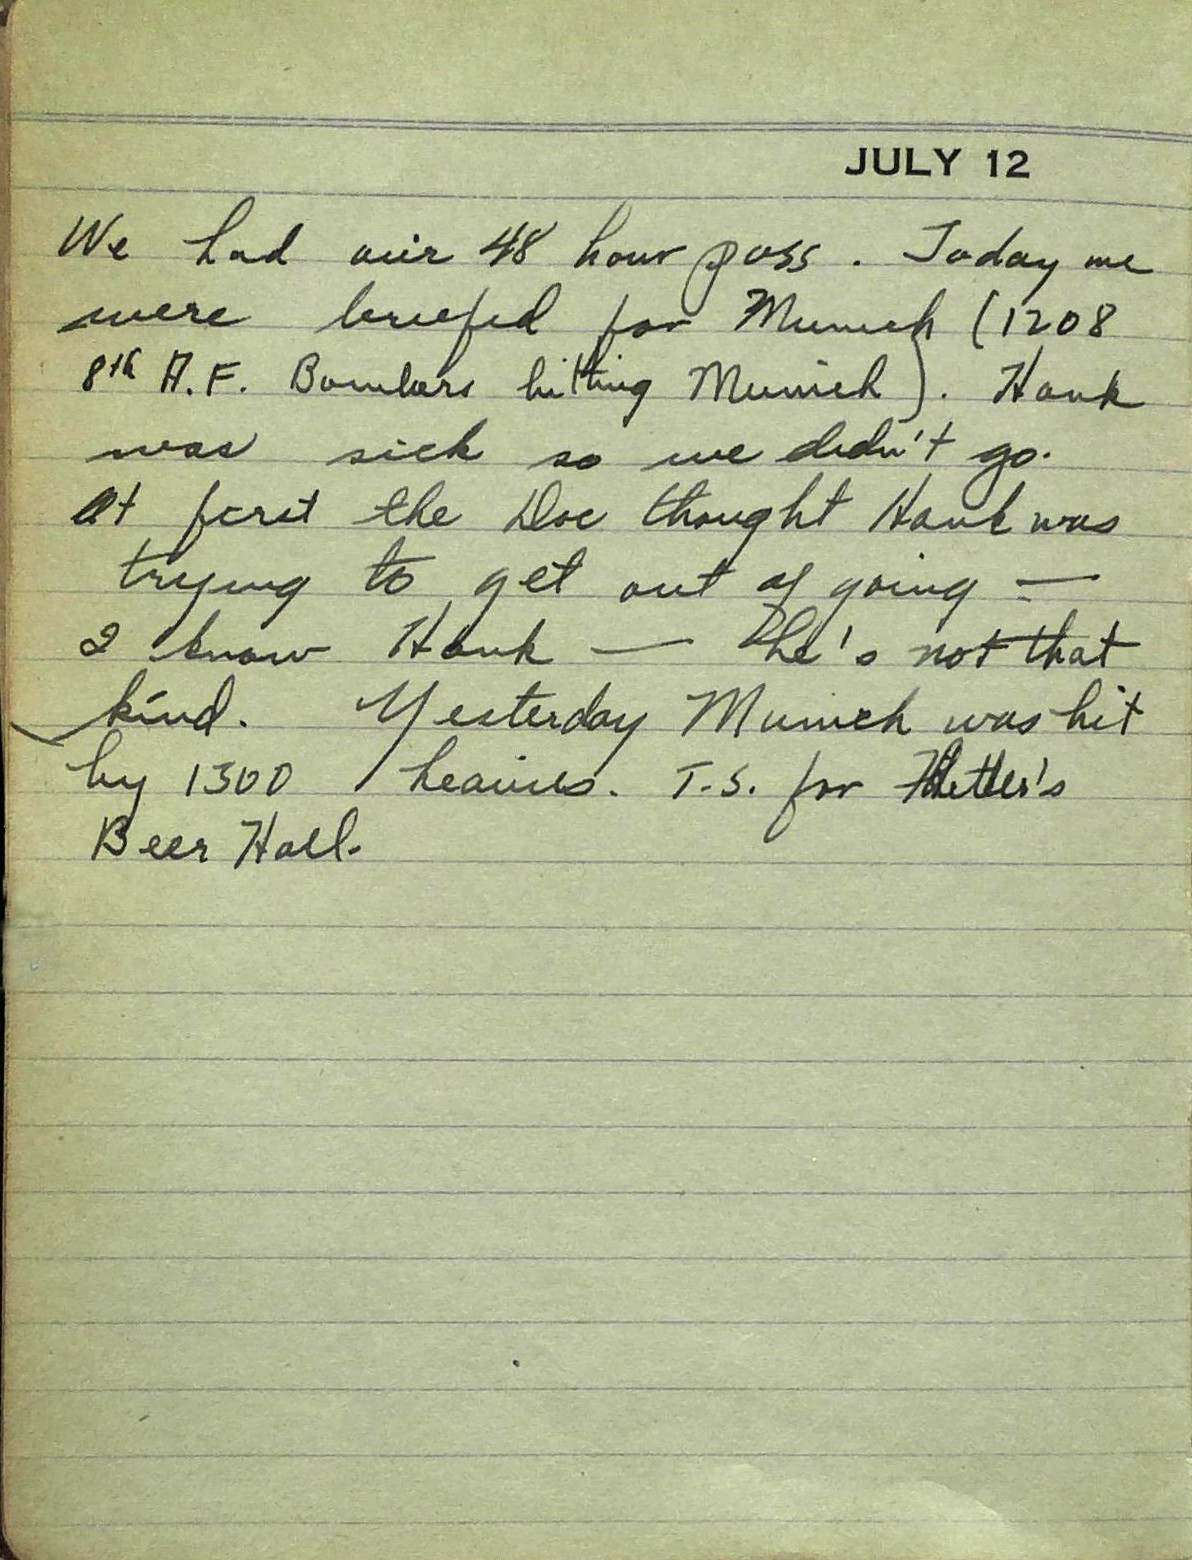 JULY 12
We had our 48 hour pass. Today we
were briefed for Munich (1208
8th A.F. Bombers hitting Munich). Hank
was sick so we didn't go.
At first the Doc thought Hank was
trying to get out of going —
I know Hank — he's not that
kind. Yesterday Munich was hit
by 1300 heavies. T.S. for Hitler's
Beer Hall.